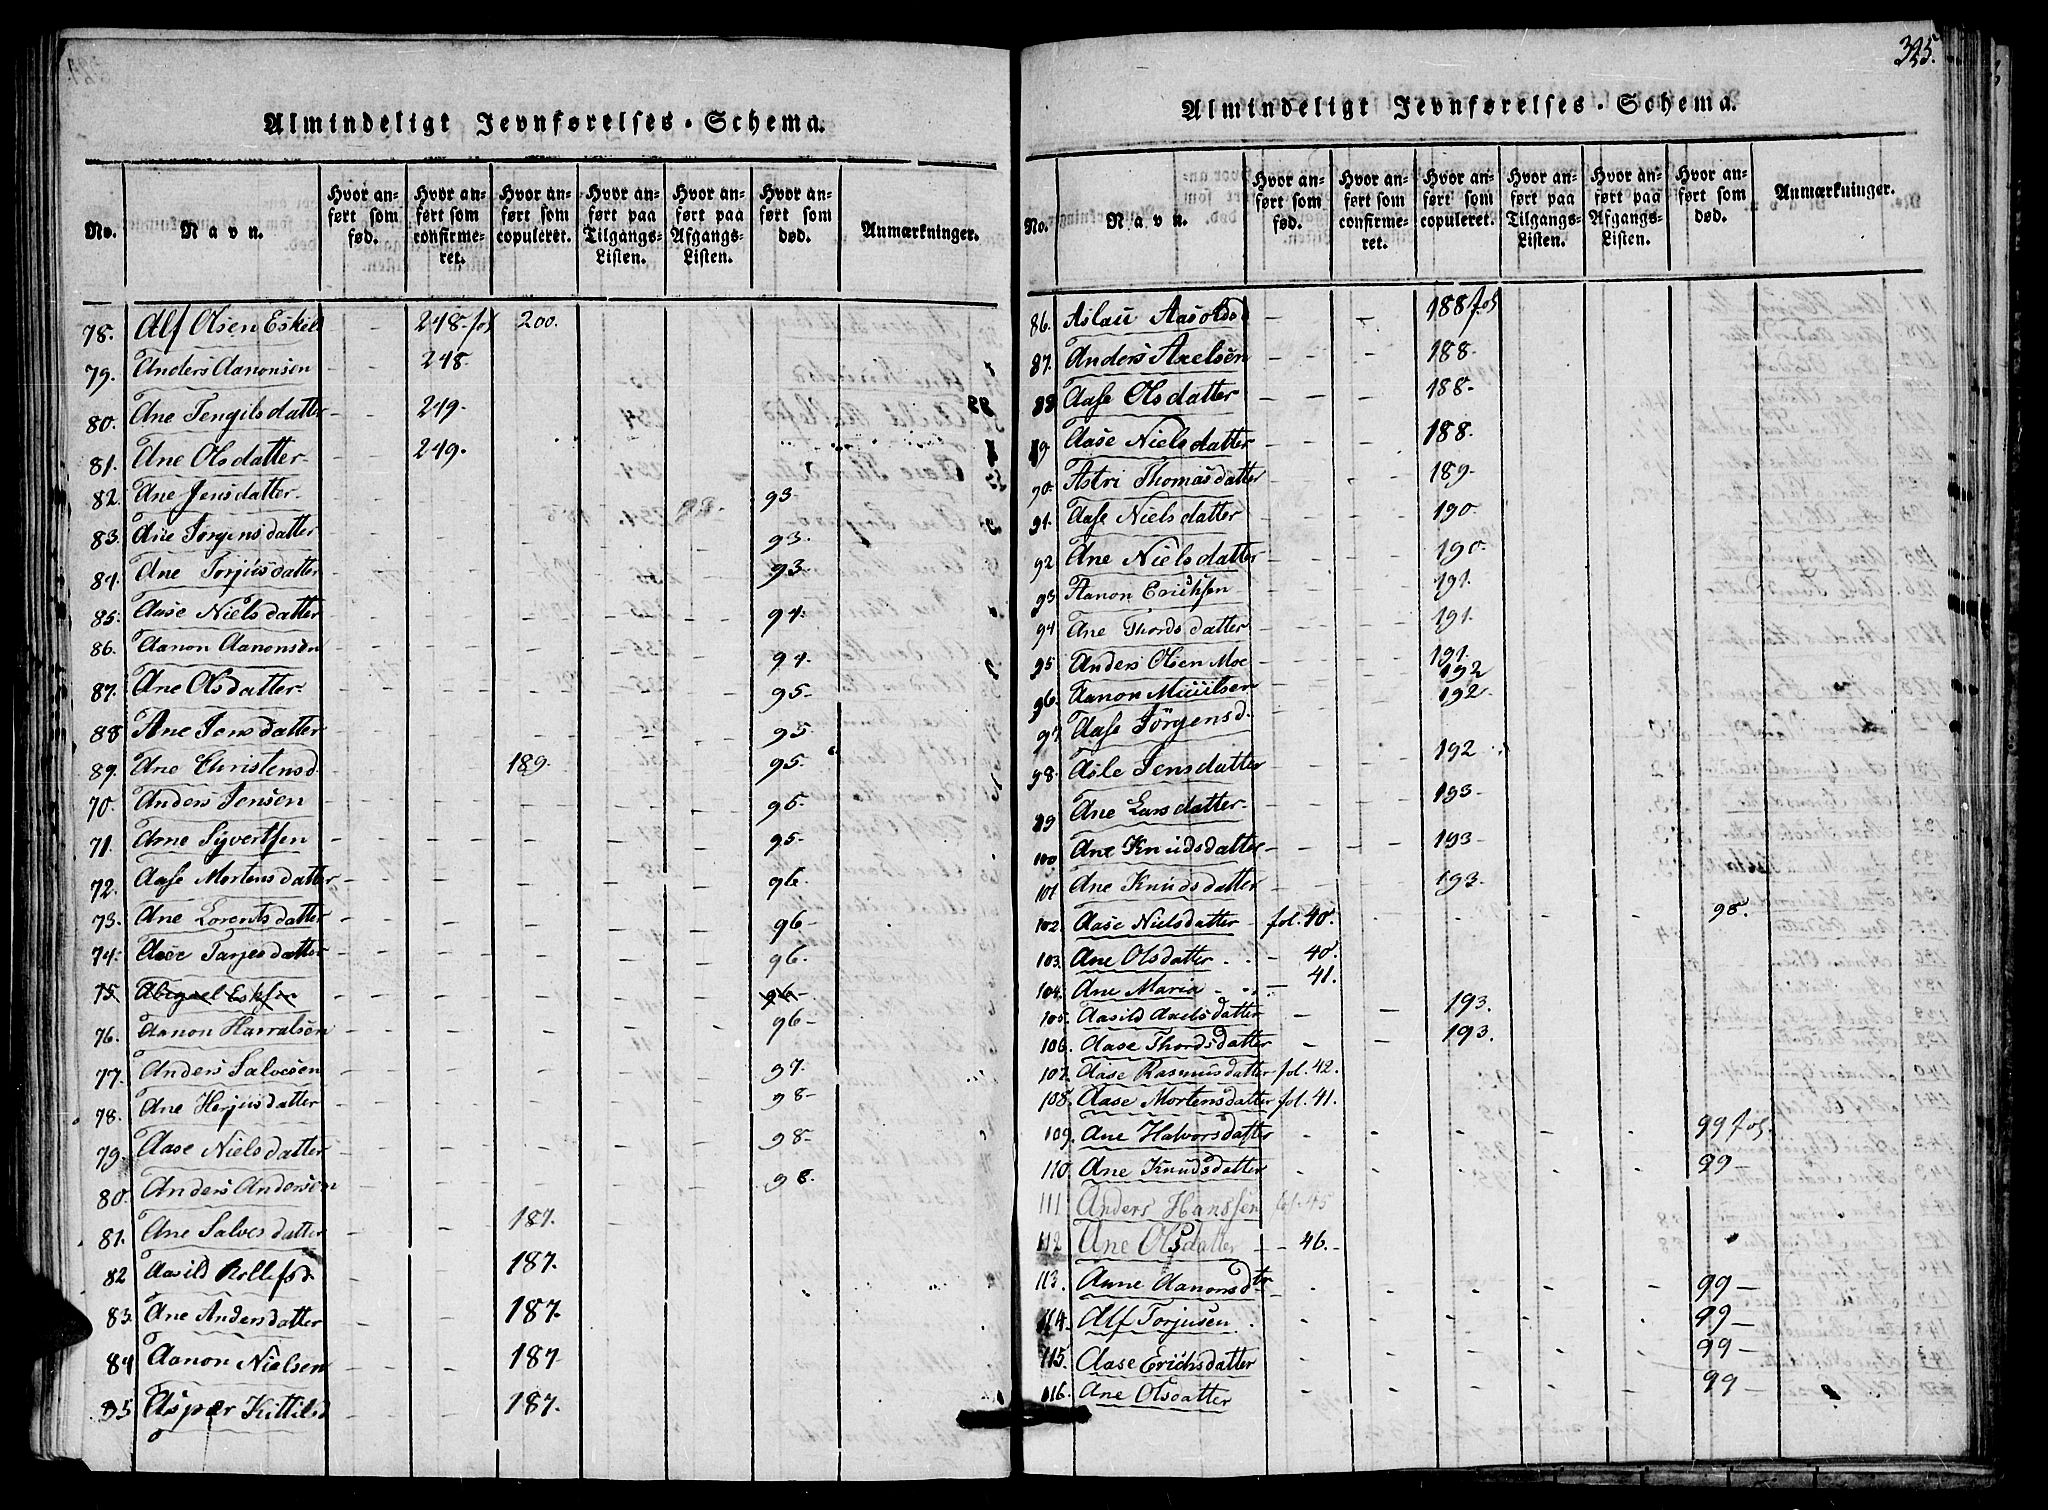 Almindeligt Jevnførelses-Schema.
No.
Navn.
Hvor anført som fød.
Hvor anført som confirmeret.
Hvor anført som copuleret.
Hvor anført paa Tilgangs-Listen.
Hvor anført paa Afgangs-Listen.
Hvor anført som død.
Anmærkninger.
78. Alf Olsen Eskel 248. fol 200.
79. Anders Aanonsen 248.
80. Ane Tengilsdatter 249.
81. Ane Olsdatter 249.
82. Ane Jensdatter 93
83. Ane Jørgensdatter 93.
84. Ane Torjusdatter 93
85. Aase Nielsdatter 94.
86. Aanon Aanonsen 94.
87. Ane Olsdatter 95
88 Ane Jensdatter 95
89. Ane Christensd. 189. 95.
70. Anders Jensen 95
71. Arne Syvertsen 95
72. Aase Mortensdatter 96.
73. Ane Lorentsdatter 96
74. Aase Tarjesdatter 96.
75. 96
76. Aanon Harralsen 96
77. Anders Salvesen 97.
78. Ane Herjusdatter 98
79. Aase Nielsdatter 98.
80. Anders Andersen 98.
81. Ane Salvesdatter 187.
82 Aasild Rollefsd. 187.
83. Ane Andersdatter 187.
84 Aanon Nielsen 187
85 Asper Kittilsd 187.
325.
Almindeligt Jevnførelses-Schema.
No.
Navn.
Hvor anført som fød.
Hvor anført som confirmeret.
Hvor anført som copuleret.
Hvor anført paa Tilgangs-Listen.
Hvor anført paa Afgangs-Listen.
Hvor anført som død.
Anmærkninger.
86. Aslau Aasolds 188 fol
87. Anders Axelsen 188.
88 Aase Olsdatter 188.
89 Aase Nielsdatter 188.
90. Astri Thomasdatter 189.
91. Aase Nielsdatter 190
92 Ane Nielsdatter 190.
93 Aanon Ericksen 191.
94 Ane Thordsdatter 191.
95 Anders Olsen Moe 191.
96. Aanon 192
97 Aase Jörgensd. 192
98. Asle Jensdatter 192
99 Ane Larsdatter 193
100 Ane Knudsdatter 193
101 Ane Knudsdatter 193.
102. Aase Nielsdatter fol. 40. 98.
103. Ane Olsdatter 40.
104. Ane Maria 41.
105. Aasild Axelsdatter 193.
106. Aase Thordsdatter 193.
107. Aase Rasmusdatter fol. 42.
108. Aase Mortensdatter fol. 41.
109. Ane Halvorsdatter 99 fol.
110. Ane Knudsdatter 99
111 Anders Hanssen fol. 45
112 Ane Olsdatter 46.
113. Anne Aanonsdtr 99
114. Alf Torjusen 99
115. Aase Erichsdatter 99
116. Ane Olsdatter 99